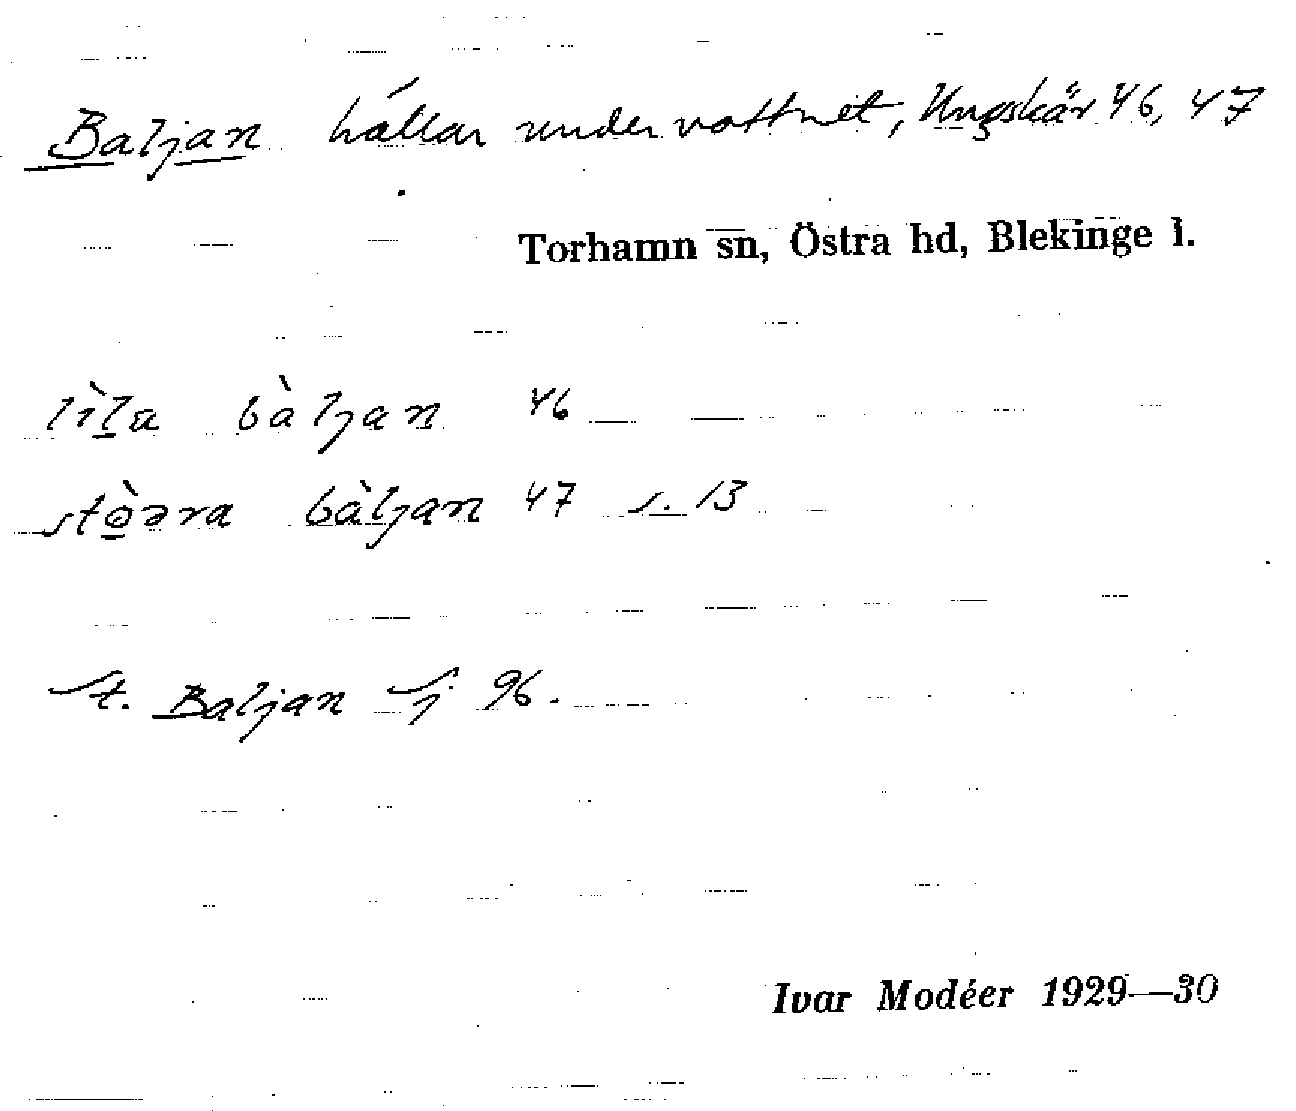 Baljan hällar under vattnet, Ungskär 46, 47
Torhamn sn, Östra hd, Blekinge l.
lìla bàljan 46
stòəra bàljan 47 s. 13
St. Baljan Sj 96.
Ivar Modéer 1929—30